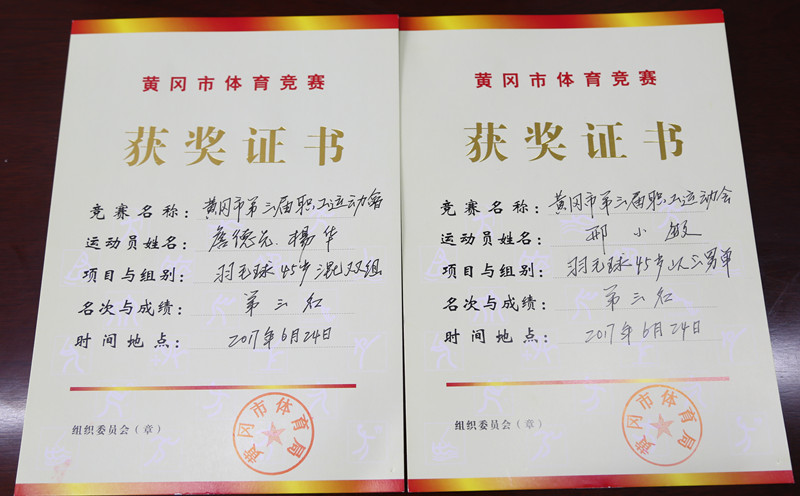 黄冈市体育竞赛
获奖证书
竞赛名称：黄冈市第三届职工运动会
运动员姓名：詹德元、杨华
项目与组别：羽毛球45岁混双组
名次与成绩：第三名
时间地点：2017年6月24日
组织委员会（章）
黄冈市体育局
黄冈市体育竞赛
获奖证书
竞赛名称：黄冈市第三届职工运动会
运动员姓名：邢小敏
项目与组别：羽毛球45岁以上男单
名次与成绩：第三名
时间地点：2017年6月24日
组织委员会（章）
黄冈市体育局